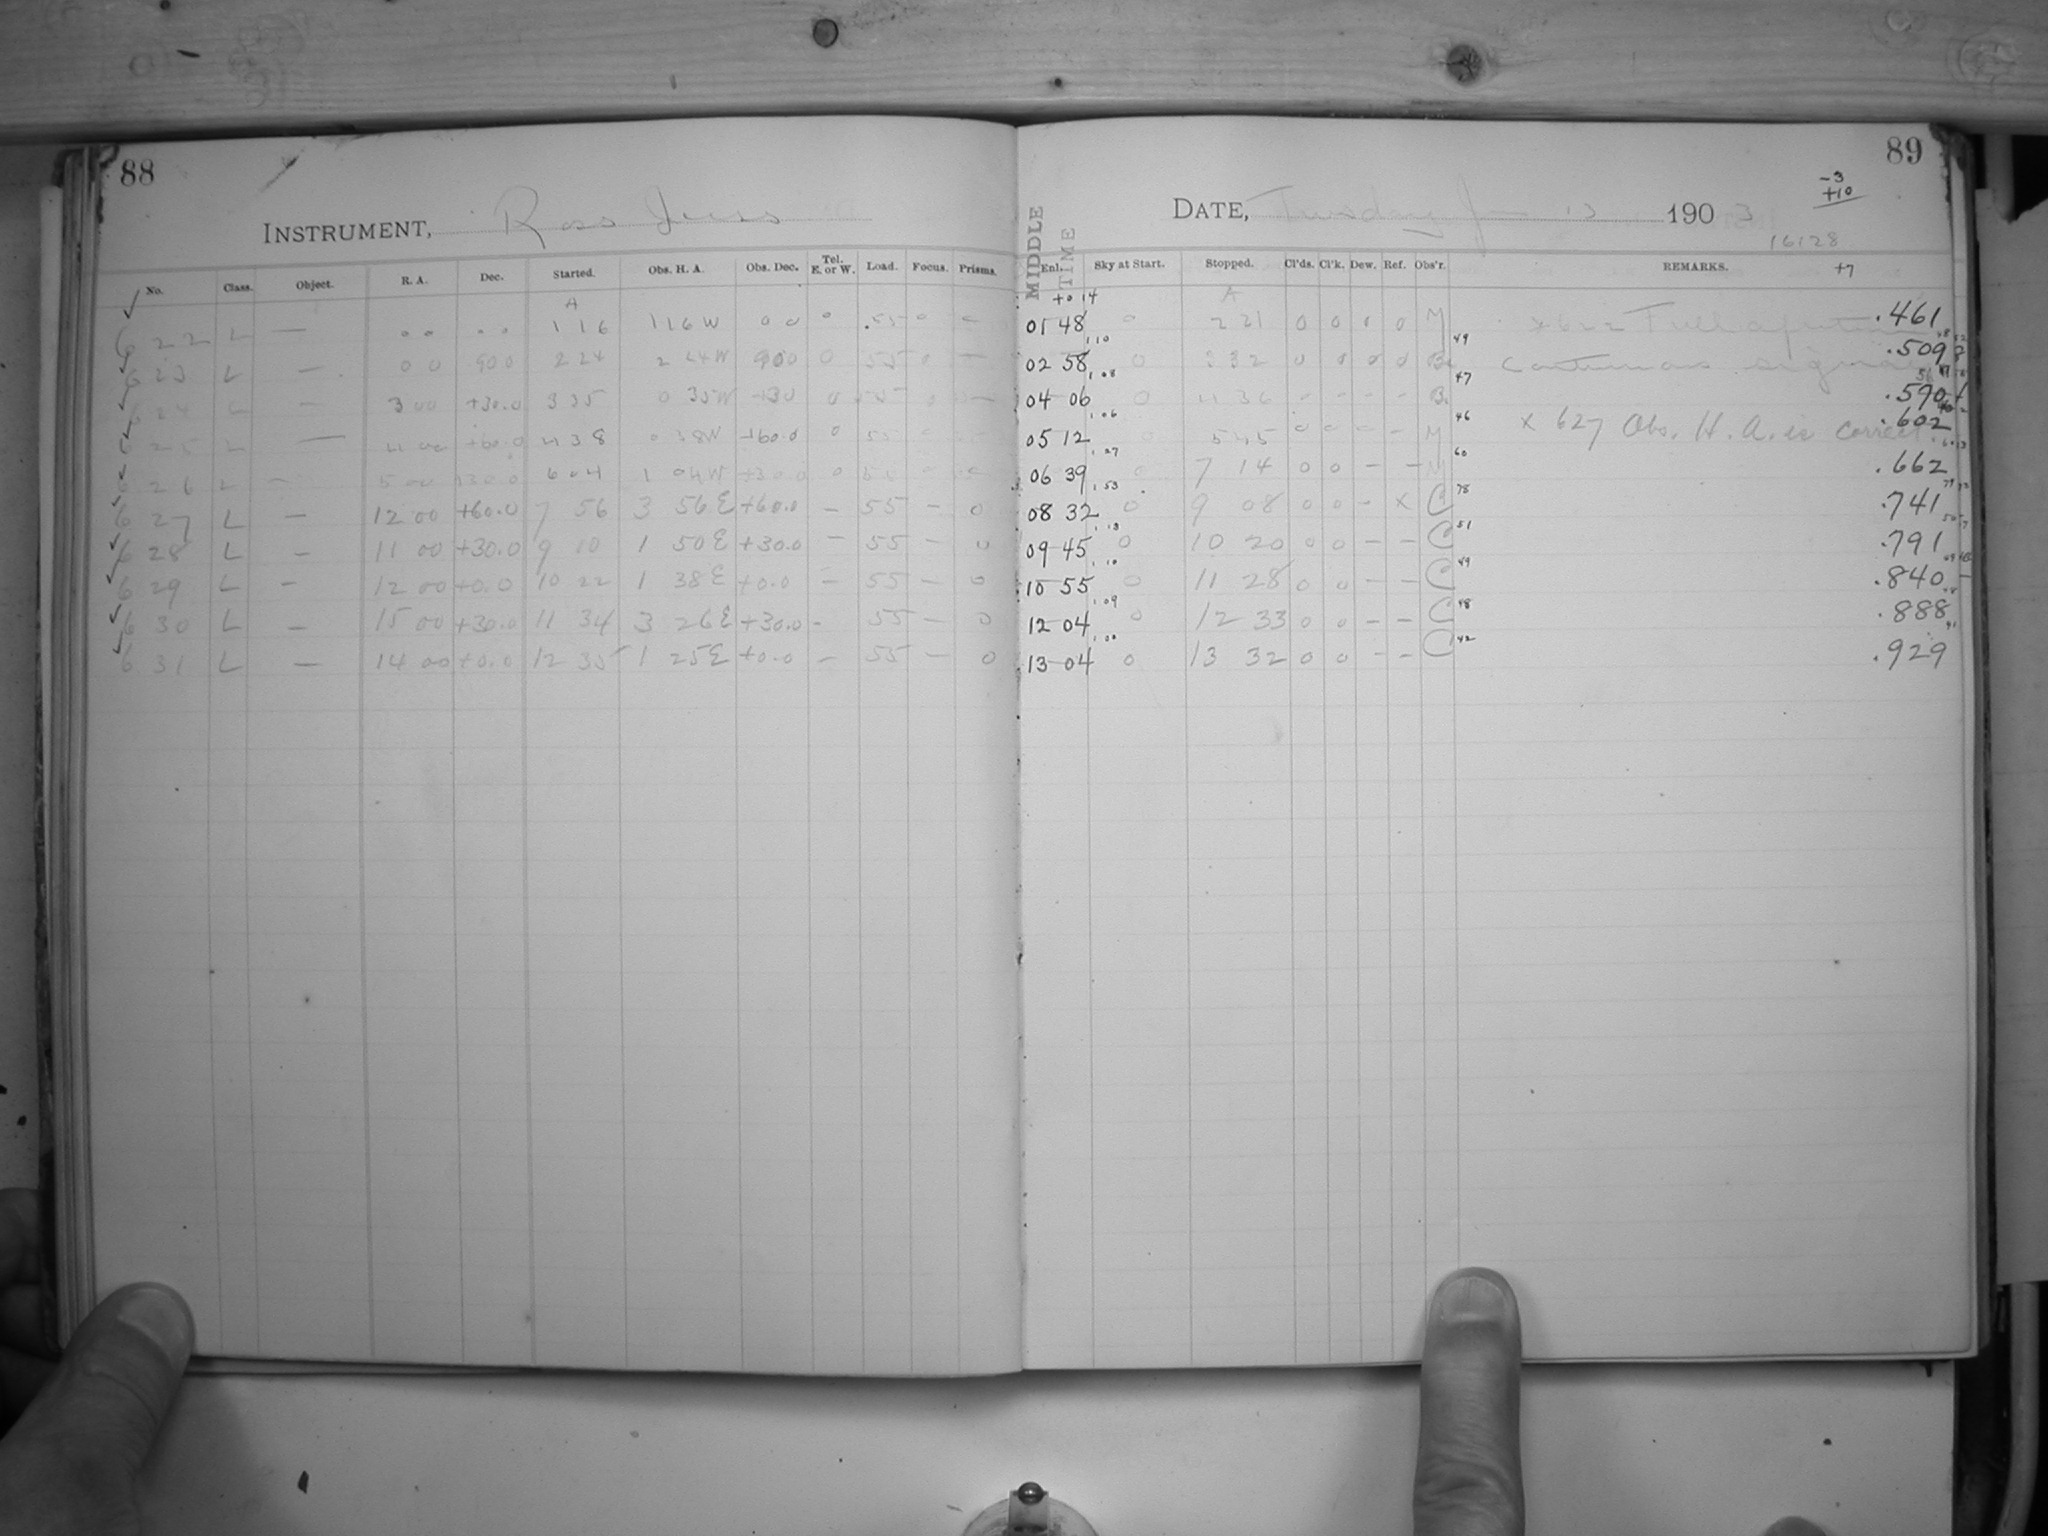 88
INSTRUMENT, Ross
No. Class. Object. R. A. Dec. Started. Obs. H. A. Obs. Dec. Tel. E. or W. Load. Focus. Prisms.
A
622 L — 0 0 0 0 1 16 1 16 W 0 0 0 .55 0 —
623 L — 0 0 90 0 2 24 2 24 W 90 0 0 55 0 —
624 L — 3 00 +30.0 3 35 0 35 W +30 0 55 0 —
625 L — 4 00 +60.0 4 38 0 38 W +60.0 0 55
626 L — 5 00 +30.0 6 04 1 04 W +30.0 0 55
627 L — 12 00 +60.0 7 56 3 56 E +60.0 — 55 — 0
628 L — 11 00 +30.0 9 10 1 50 E +30.0 — 55 — 0
629 L — 12 00 +0.0 10 22 1 38 E +0.0 — 55 — 0
630 L — 15 00 +30.0 11 34 3 26 E +30.0 — 55 — 0
631 L — 14 00 +0.0 12 35 1 25 E +0.0 — 55 — 0
89
-3
+10
DATE, Tuesday 13 1903
16128
+7
MIDDLE TIME
Enl. Sky at Start. Stopped. Cl'ds. Cl'k. Dew. Ref. Obs'r. REMARKS.
+0 14 A
01 48 0 2 21 0 0 0 0 M × 622 Full .461
1.10 49
02 58 0 3 32 0 0 0 0 continuous .509
1.08 47
04 06 0 4 36 - - - - B. .590
1.06 46
05 12 5 45 0 0 — — M × 627 Obs. H. A. is correct .602
1.27 60
06 39 0 7 14 0 0 — — M .662
1.53 78
08 32 0 9 08 0 0 — × C .741
1.13 51
09 45 0 10 20 0 0 — — C .791
1.10 49
10 55 0 11 28 0 0 — — C .840
1.09 48
12 04 0 12 33 0 0 — — C .888
1.00 42
13 04 0 13 32 0 0 — — C .929